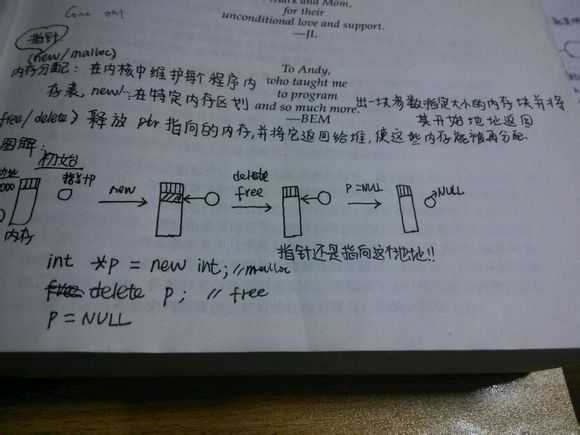 Mark and Mom,
for their
unconditional love and support.
—JL
指针
(new/malloc)
To Andy,
内存分配: 在内核中维护每个程序内
who taught me
to program
存表, new/- 在特定内存区划
and so much more.
出一块参数指定大小的内存块并将
其开始地址返回
—BEM
free/delete) 释放 ptr 指向的内存,并将它返回给堆,使这些内存能被再分配.
图解:
初始
指针P
new
delete
free
P=NULL
NULL
内存
指针还是指向这个地址!!
int *p = new int; //malloc
delete p; // free
P = NULL